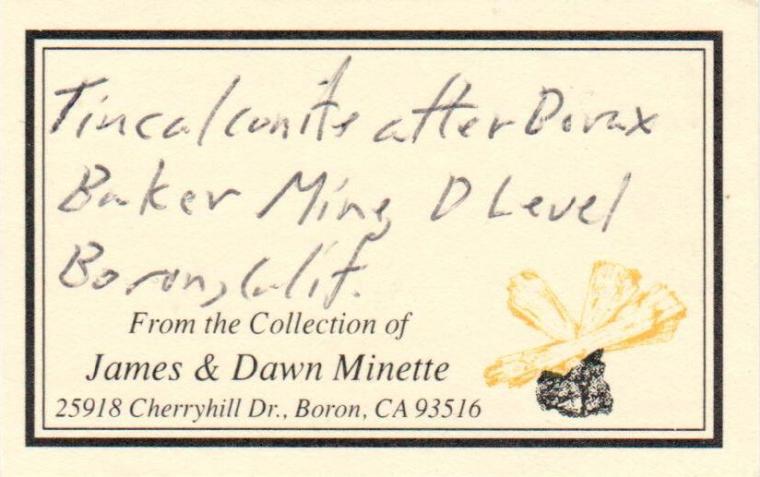 Tincalconite after Borax
Baker Mine, D Level
Boron, Calif.
From the Collection of
James & Dawn Minette
25918 Cherryhill Dr., Boron, CA 93516